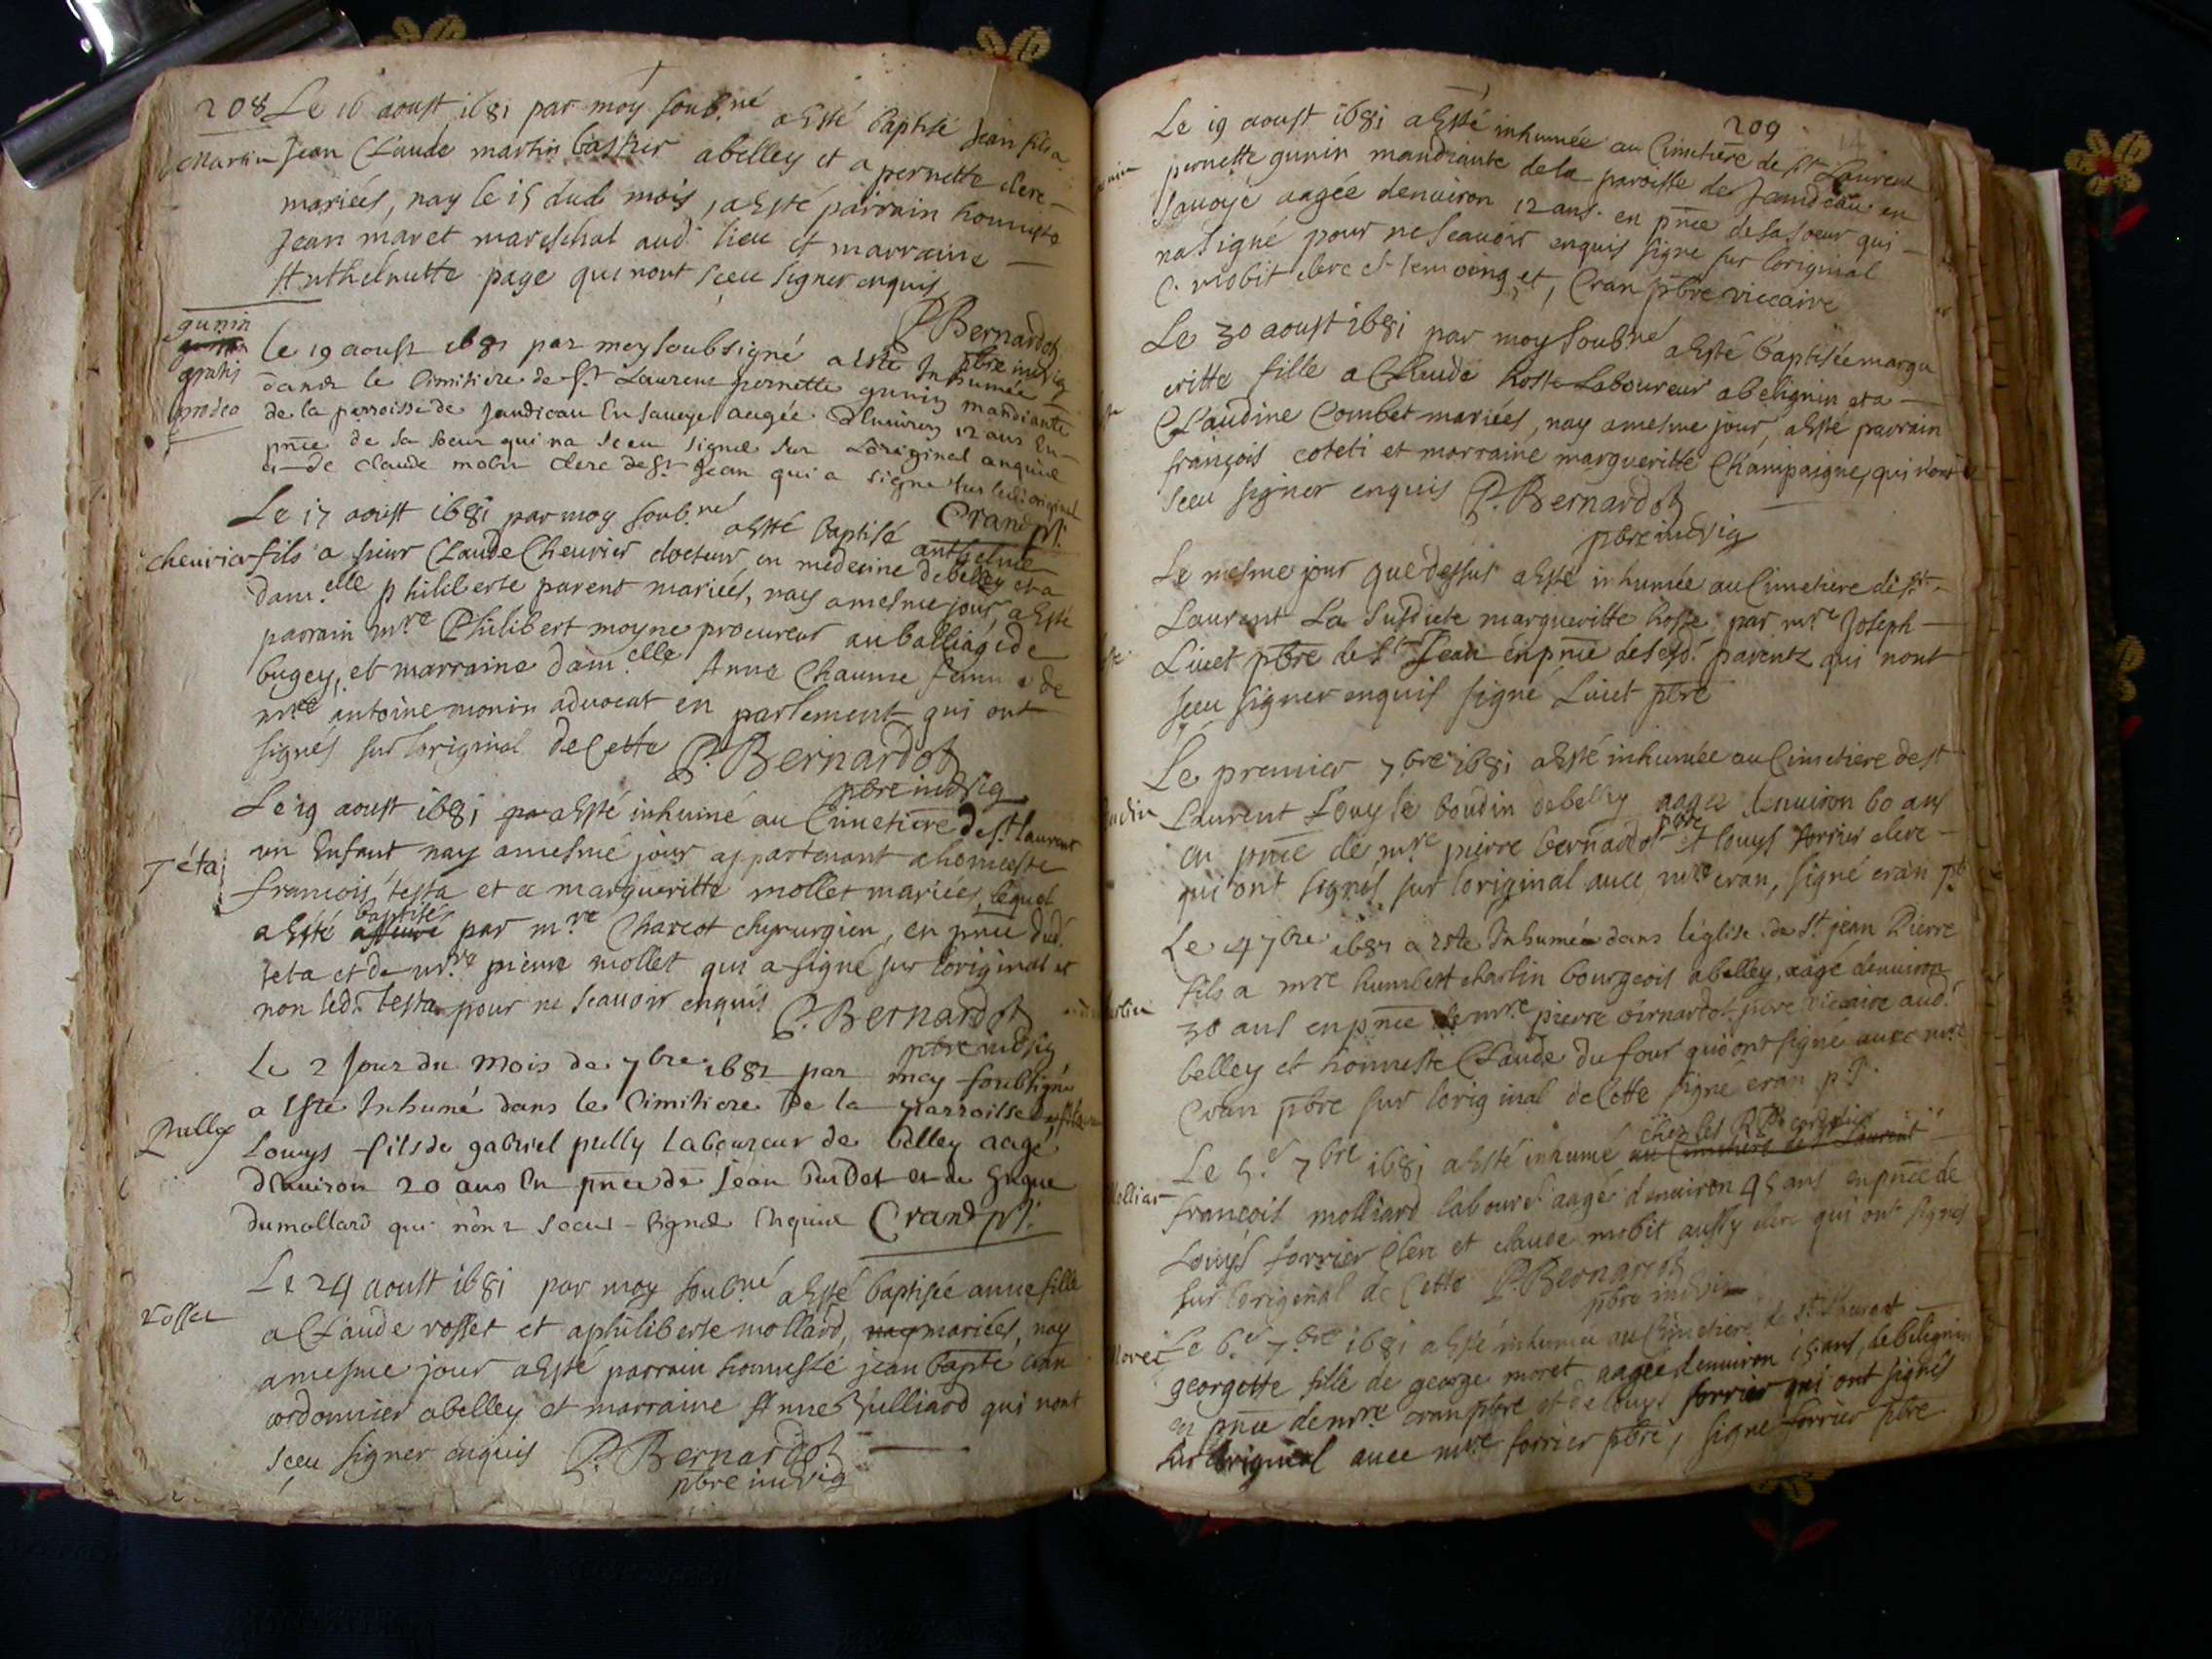 208 Le 16 aoust 1681 par moy soub.né a Esté baptisé Jean fils a
Martin Jean Claude martin bastier abelley et a pernette clerc
mariées, nay le 15 dud. mois, a Esté parrain honneste
Jean maret mareschal aud. lieu et marraine
Anthelmette page qui nont sceu signer enquis
P. Bernardot
pbre indig
gunin
gratis
pro deo
le 19 aoust 1681 par moy soubsigné a Esté Inhumée
dans le Cimitiere de St Laurent pernette gunin mandiante
de la parroisse de Jandicau En savoye aagée d'Enuiron 12 ans En
pnce de sa soeur qui na sceu signer sur Loriginal enquise
et de claude mobit clerc de St Jean qui a signé sur led. original
Cran pt.
Le 17 aoust 1681 par moy soub.né a Esté baptisé anthelme
cheurier fils a sieur Claude Cheurier docteur en medecine debelley et a
dam.elle philiberte parent mariées, nay amesme jour, a Esté
parrain m.re Philibert moyne procureur au balliage de
bugey, et marraine dam.elle Anne Chaume femme de
m.re antoine monin aduocat en parlement qui ont
signés sur loriginal de Cette P. Bernardot
pbre indig
Le 19 aoust 1681 par a Esté inhumé au Cimetiere de St. Laurent
Téta un Enfant nay amesme jour appartenant a honneste
francois testa et a margueritte mollet mariées, lequel
a Esté baptisé par m.re Charcot chyrurgien, en pnce dud.
teta et de m.re pierre mollet qui a signé sur loriginal et
non led. testa pour ne scauoir enquis P. Bernardot
pbre indig
Le 2 Jour du mois de 7bre 1681 par moy soubsigné
a Esté Inhumé dans le Cimitiere de la parroisse
pully Louys fils de gabriel pully Laboureur de belley aagé
d'Enuiron 20 ans En pnce de Jean et de
dumollard qui nont sceu signer Enquis Cran pt.
Le 24 aoust 1681 par moy soub.né a Esté baptisée anne fille
rosset a Claude rosset et a philiberte mollard, nay mariées, nay
amesme jour a Esté parrain honnesté jean bapté cran
cordonnier abelley et marraine Anne Julliard qui nont
sceu signer enquis P. Bernardot
pbre indig
209
Le 19 aoust 1681 a Esté inhumée au Cimetiere de St Laurent
pernette gunin mandiante de la paroisse de Jandicau en
sauoye aagée denuiron 12 ans. en pnce de sa soeur qui
na signé pour ne scauoir enquis signe sur loriginal
C. mobit clerc et temoing et, Cran pbre viccaire
Le 30 aoust 1681 par moy soub.né a Esté baptisée margu
eritte fille a Claude hoste Laboureur abelignin et a
Claudine Combet mariées, nay amesme jour, a Esté parrain
françois coteti et marraine margueritte Champaigne, qui nont
sceu signer enquis P. Bernardot
pbre indig
Le mesme jour que dessus a Esté inhumée au Cimetiere de St.
Laurent La susdicte margueritte hoste par m.re Joseph
Liuet pbre de St Jean en pnce de sesd. parentz qui nont
sceu signer enquis signé Liuet pbre
Le premier 7.bre 1681 a Esté inhumée au Cimetiere de st
Laurent Louyse boudin debelley aagée denuiron 60 ans
en pnce de m.re pierre bernardot pbre et louys forrier clerc
qui ont signés sur loriginal auec m.re cran, signé cran pb
Le 4 7bre 1681 a Esté Inhumée dans léglise de St. jean Pierre
fils a mre humbert charlin bourgeois abelley, aagé denuiron
30 ans en pnce de mre pierre bernardot pbre viccaire aud.
belley et honneste Claude du four qui ont signé auec m.re
Cran pbre sur loriginal de Cette signé cran p.b.
Le 5.e 7bre 1681 a Esté inhumé au Cimetiere de St Laurent chez les R P cordelier
francois molliard labour.r aagé denuiron 45 ans en pnce de
Louys forrier Clerc et claude mobit aussy clerc qui ont signés
sur loriginal de Cette P. Bernardot
pbre indig
Moret Le 6.e 7.bre 1681 a Esté inhumée au Cimetiere de St. Laurent
georgette fille de george moret aagée denuiron 15 ans, de belignin
en pnce de m.re cran pbre et de louys forrier qui ont signés
sur loriginal auec m.re forrier pbre, signe forrier pbre